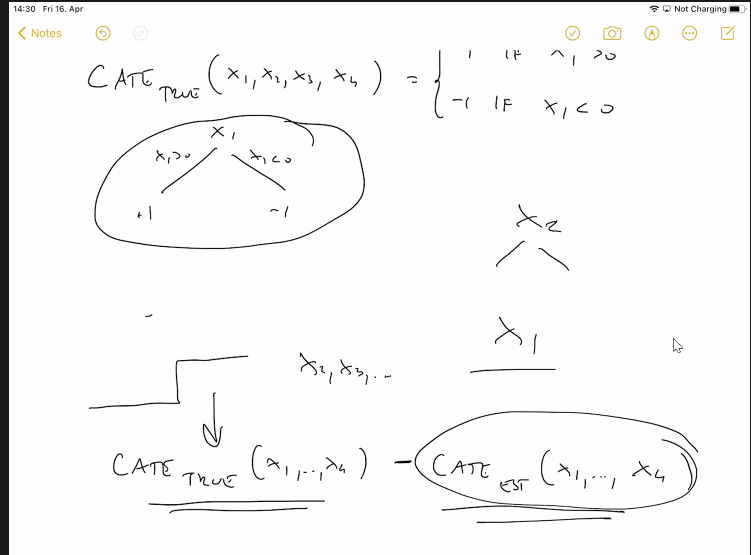 14:30 Fri 16. Apr
Not Charging
Notes
1 IF x₁ >0
CATE TRUE (x₁, x₂, x₃, x₄) =
-1 IF x₁ < 0
x₁
x₁>0 x₁<0
+1 -1
x₂
x₁
x₂, x₃, ...
CATE TRUE (x₁, ..., x₄) - CATE EST (x₁, ..., x₄)